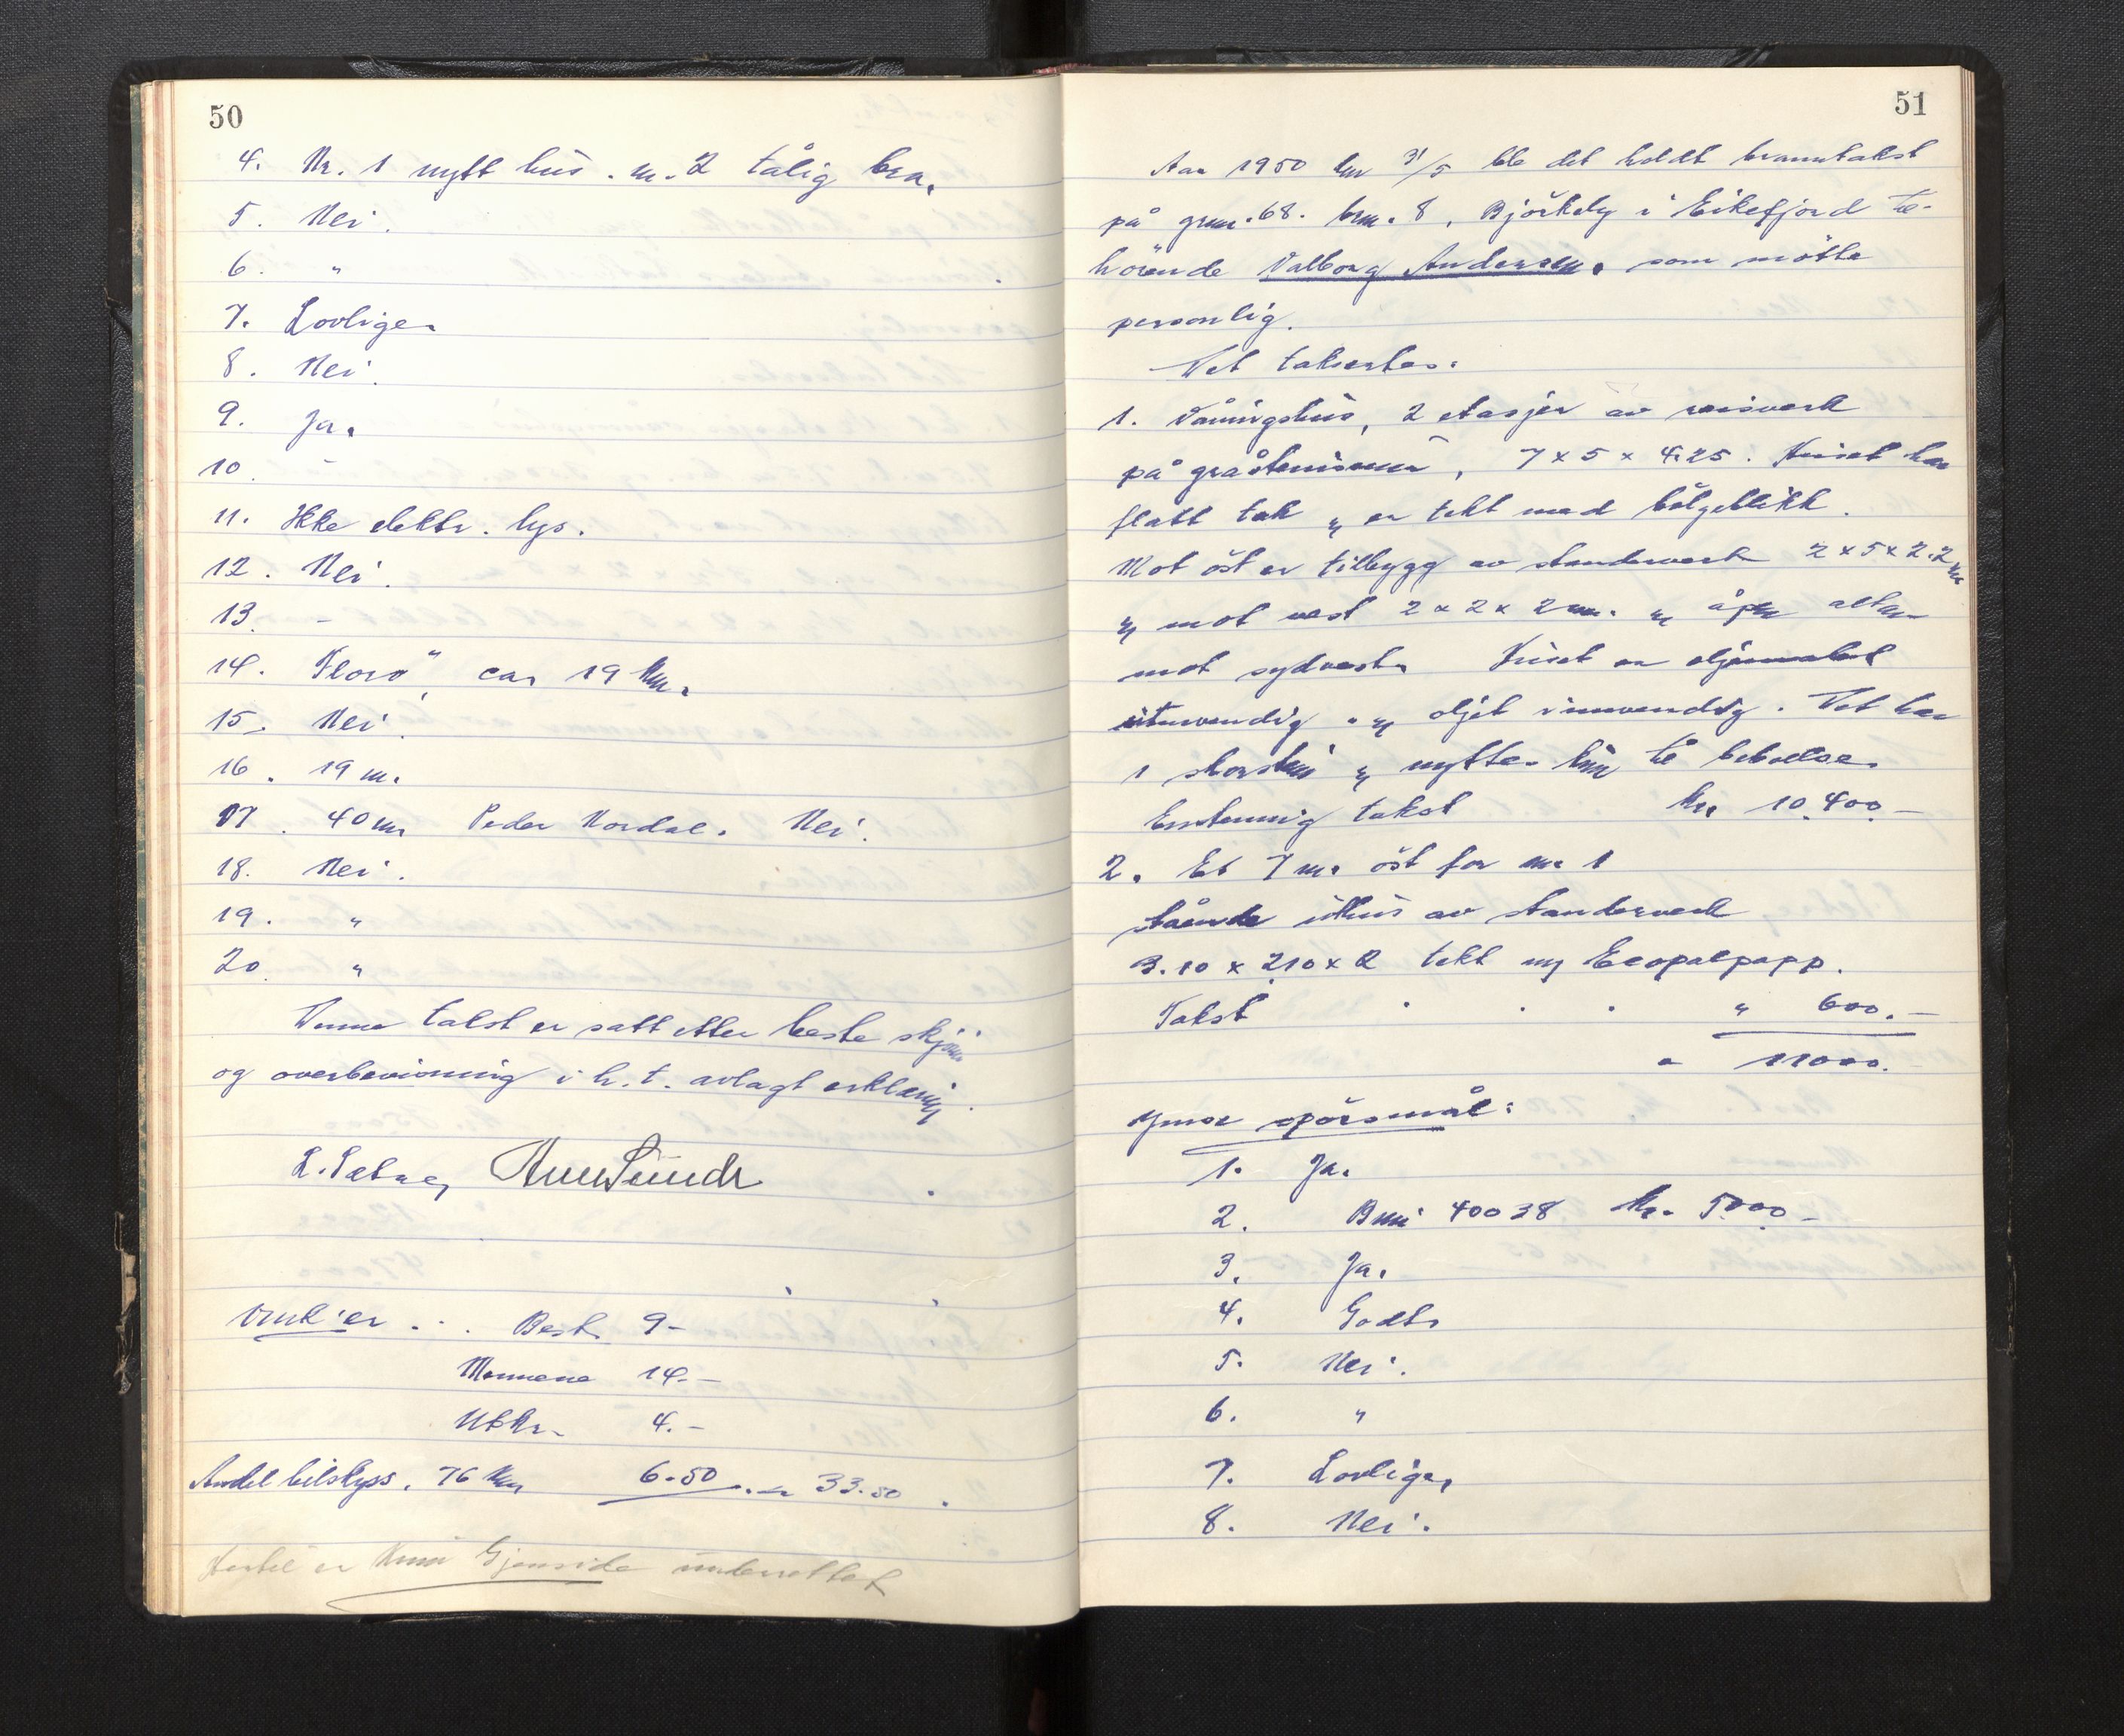 50
4. Nr. 1 nytt hus. nr. 2 tålig bra.
5. Nei.
6. "
7. Lovlige.
8. Nei.
9. Ja.
10. -
11. Ikke elektr. lys.
12. Nei.
13. -
14. Florö, ca. 19 km.
15. Nei.
16. 19 m.
17. 40 m Peder Nordal. Nei.
18. Nei.
19. "
20. "
Denne takst er satt etter beste skjönn
og overbevisning i h. t. avlagt erklæring.
L. Sætre,
Best. 9-
Mennene 14.-
Utkr. 4.-
Andel bilskyss. 76 km 6.50 33.50
er Gjenside underrettet
51
Aar 1950 den 31/5 ble det holdt branntakst
på gnr. 68. brn. 8, Björkely i Eikefjord til-
hörende Valborg Andersen, som mötte
personlig.
Det takseres:
1. Våningshus, 2 etasjer av reisverk
på gråstensmur, 7 x 5 x 4.25. Huset har
flatt tak og er tekt med bölgeblikk.
Mot öst er tilbygg av standerverk 2 x 5 x 2.2 m
og mot vest 2 x 2 x 2 m. og åpen altan
mot sydvest. Huset er oljemalt
utenvendig og oljet innvendig. Det har
1 skorsten og nyttes kun til beboelse.
Erstatning takst kr. 10.400.-
2. Et 7 m. öst for nr. 1
stående uthus av standerverk
3.10 x 2.10 x 2 tekt m/ Ecopalpapp.
Takst . . . " 600.-
" 11000.
Ymse spörsmål:
1. Ja.
2. 40038 kr. 5000-
3. Ja.
4. Godt.
5. Nei.
6. "
7. Lovlige.
8. Nei.